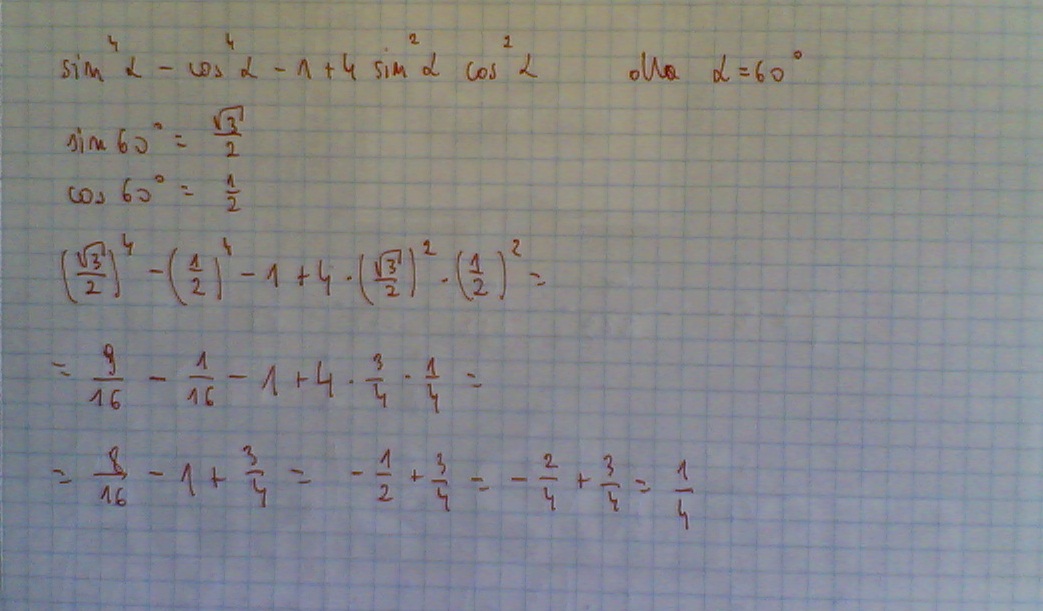 sin⁴ α - cos⁴ α - 1 + 4 sin² α cos² α dla α = 60°
sin 60° = √3/2
cos 60° = 1/2
(√3/2)⁴ - (1/2)⁴ - 1 + 4 · (√3/2)² · (1/2)² =
= 9/16 - 1/16 - 1 + 4 · 3/4 · 1/4 =
= 8/16 - 1 + 3/4 = - 1/2 + 3/4 = - 2/4 + 3/4 = 1/4